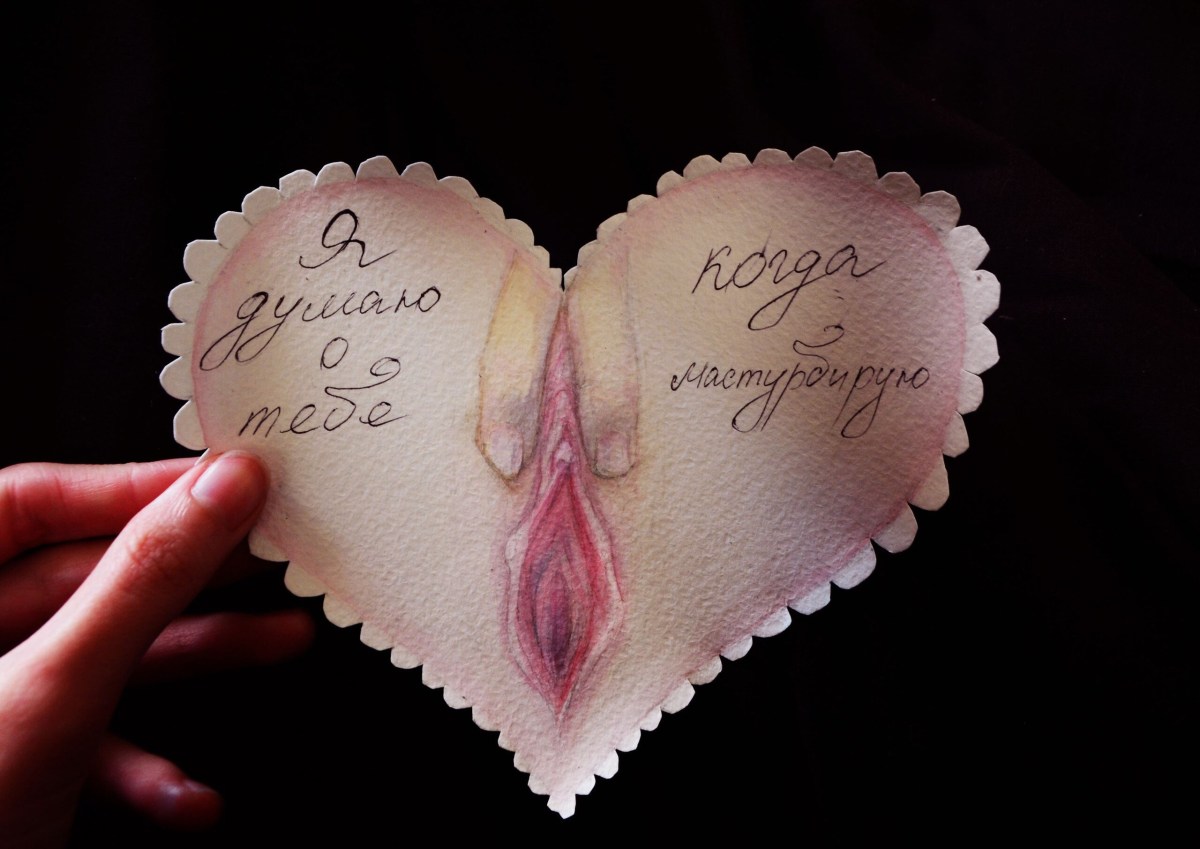 Я
думаю
о
тебе
когда
мастурбирую